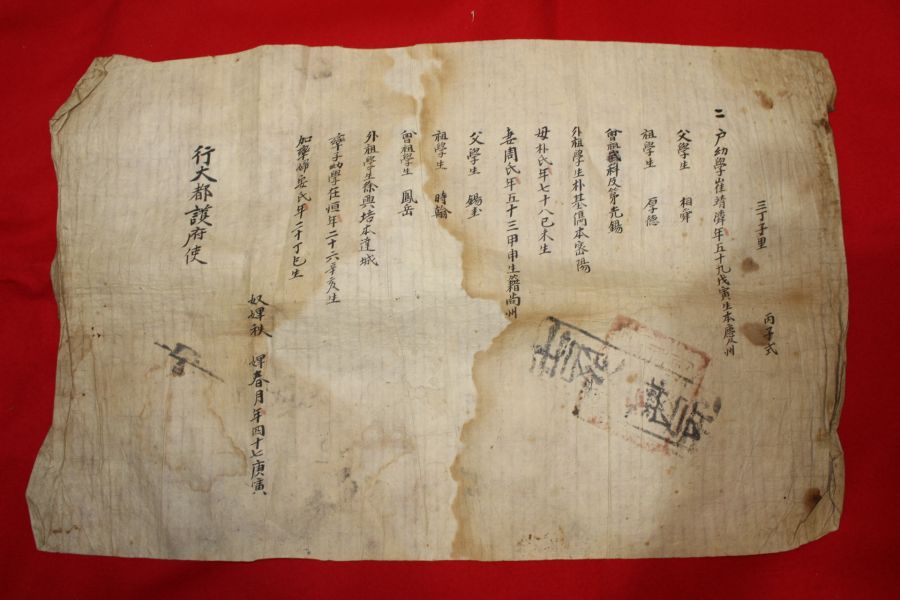 三丁子里 丙子式
二戶幼學崔靖濟年五十九戊寅生本慶州
父學生 相舜
祖學生 厚德
曾祖武科及第光錫
外祖學生朴基僞本密陽
母朴氏年七十八己未生
妻周氏年五十三甲申生籍尙州
父學生 錫圭
祖學生 時翰
曾祖學生 鳳岳
外祖學生徐興培本達城
率子幼學在恒年二十六辛亥生
加率婦安氏年二十丁巳生
奴婢秩 婢春月年四十七庚寅
行大都護府使